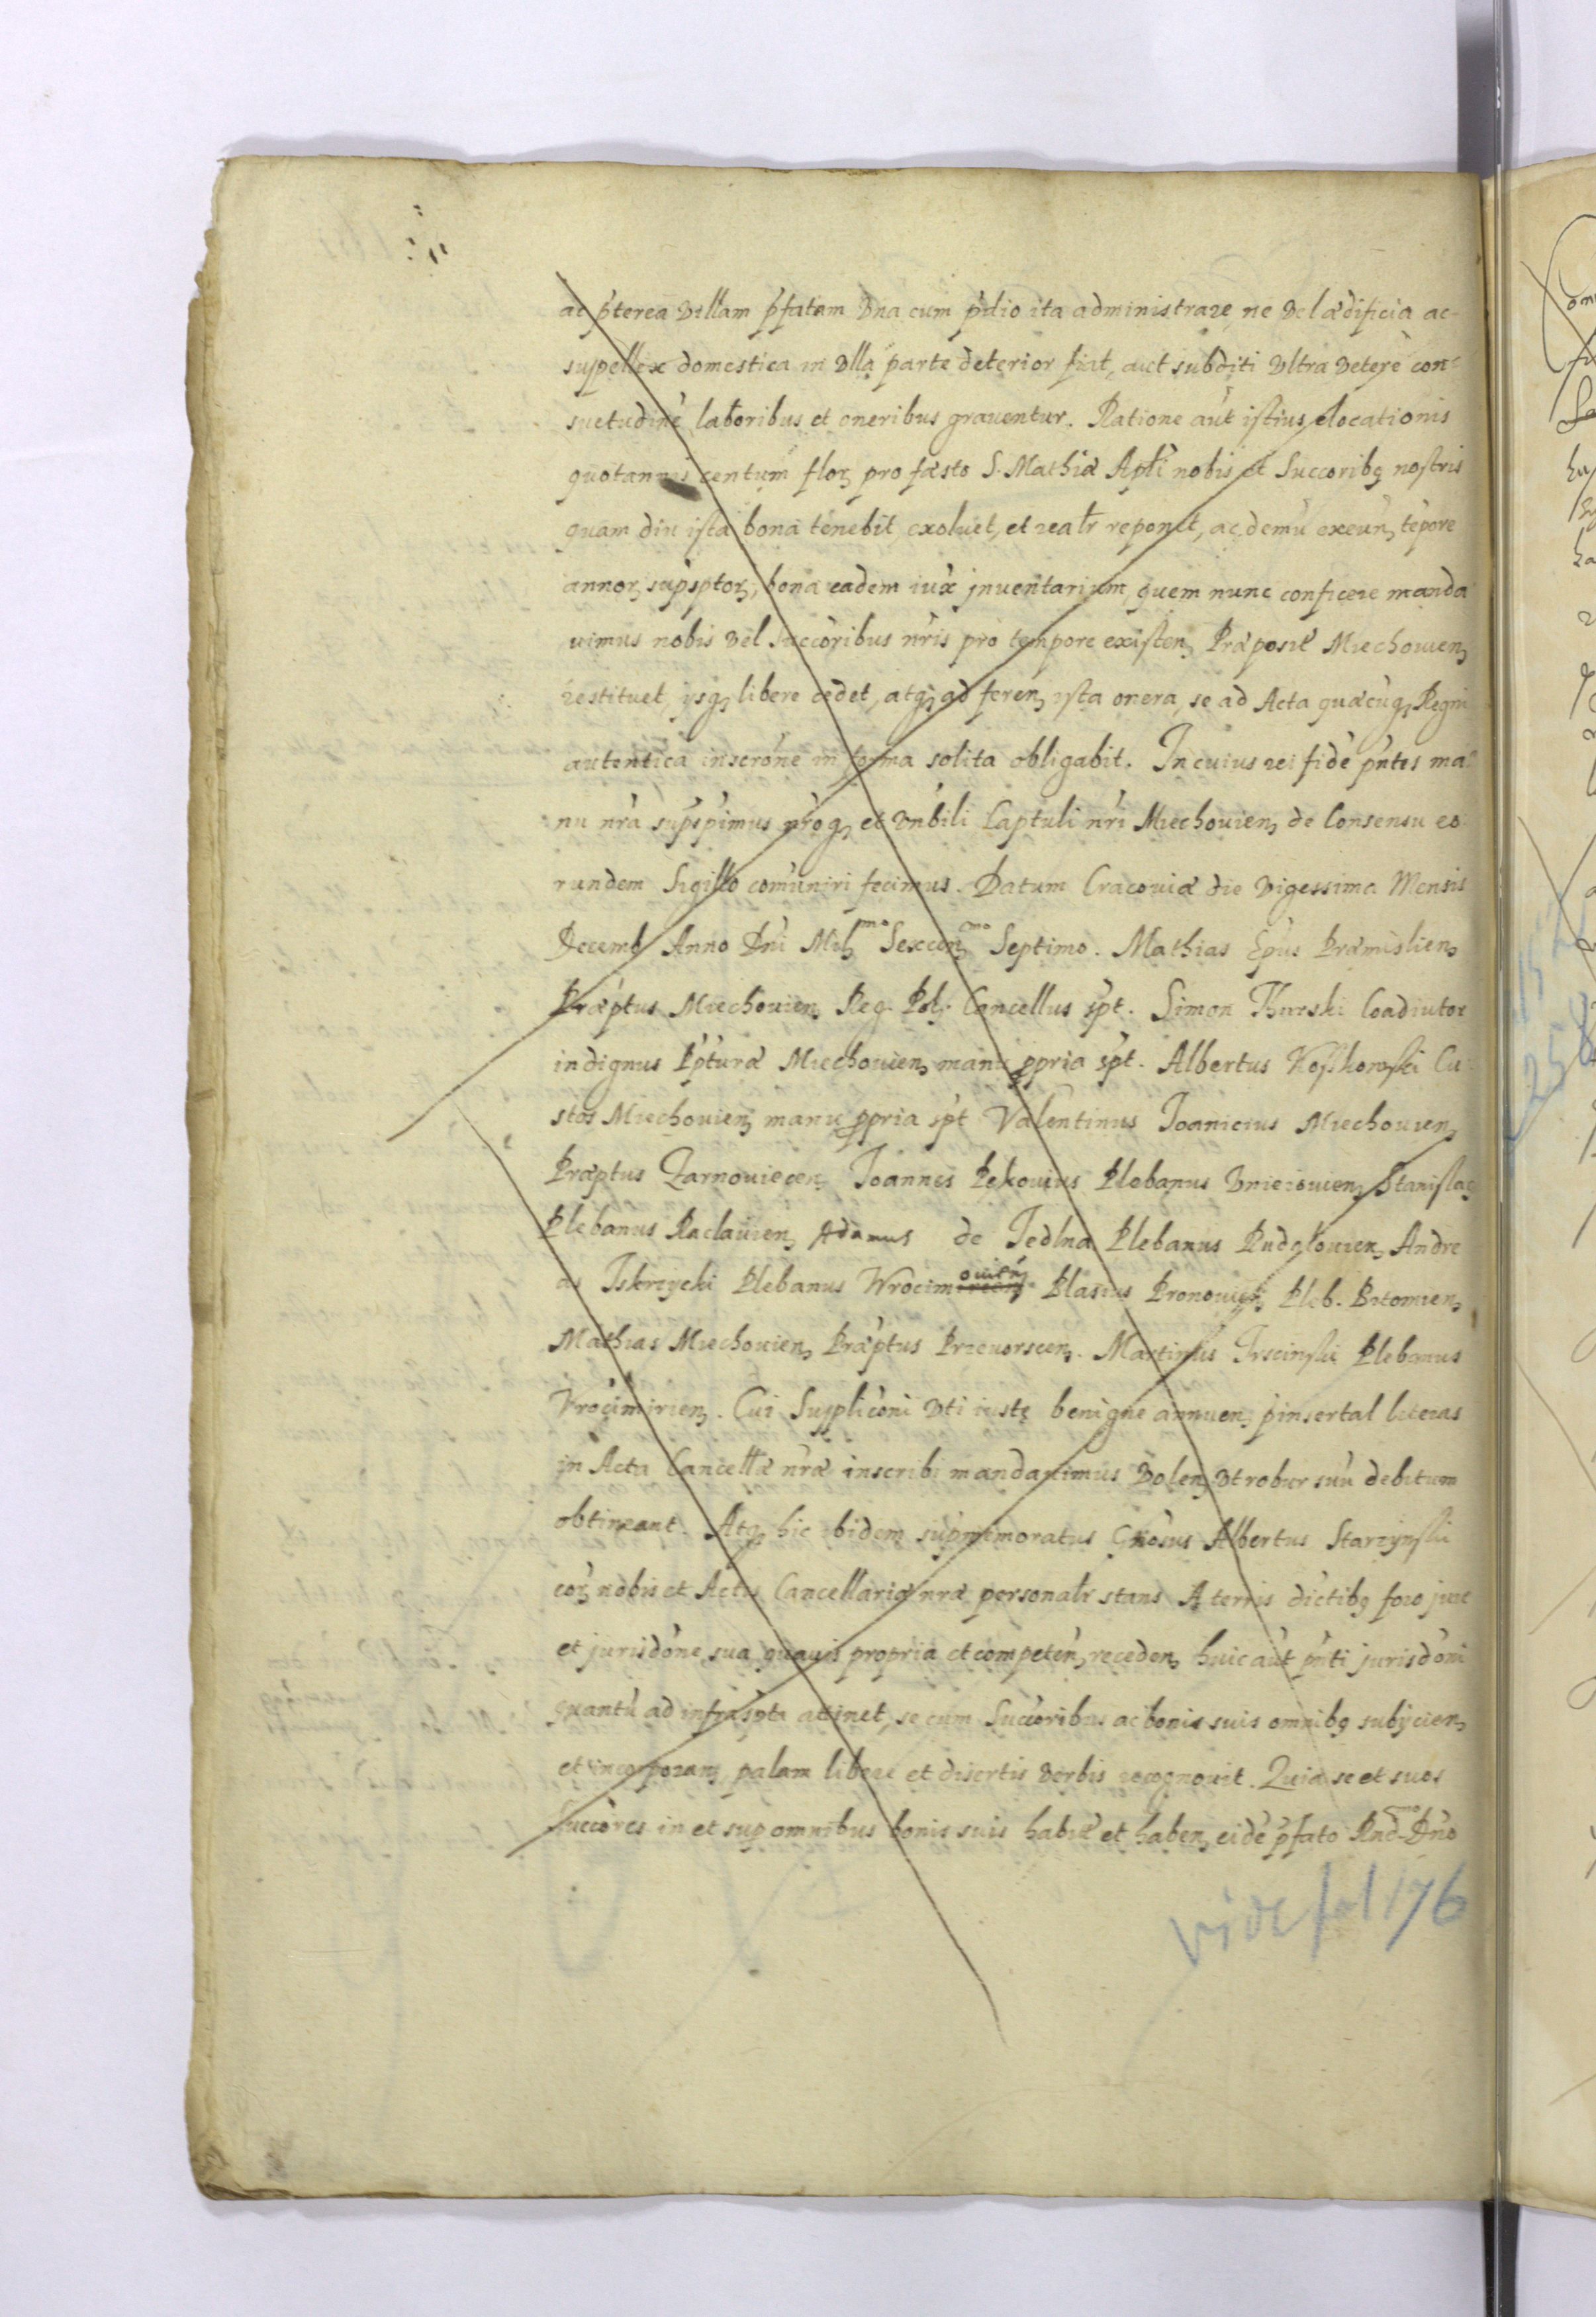 ac p̃terea Villam p̃fatam Vna cum p̃dio ita administrare, ne Vel ædificia ac
suppellex domestica in Vlla parte deterior fiat, aut subditi Vltra Veterẽ con-
suetudinẽ laboribus et oneribus grauentur. Ratione aut̃ istius elocationis
quotannis centum floꝝ pro fæsto S. Mathiæ Apl̃i nobis et Succoribꝫ nostris
quam diu ista bona tenebit, exoluet, et realr̃ reponet, ac demũ exeun̄ tẽpore
annoꝝ sup̃sptoꝝ, bona eadem iux̃ jnuentarium, quem nunc conficere manda
uimus nobis Vel Succoribus nr̃is pro tempore existen̄ Præposit̃ Miechouien̄
restituet, ijsqꝫ libere cedet, atqꝫ ad feren̄ ista onera, se ad Acta quæcũqꝫ Regni
autentica inscrõne in forma solita obligabit. In cuius rei fidẽ pñtes ma-
nu nr̃a sup̃sp̃imus nr̃oqꝫ et Vñbili Captuli nr̃i Miechouien̄ de Consensu eo-
rundem Sigillo comũniri fecimus. Datum Cracouiæ die Vigessima Mensis
Decemb Anno Dñi Mil̄mo Sexcen̄mo Septimo. Mathias Ep̃us Præmislien̄
Præptus Miechouien̄ Reg. Pol. Cancellus sp̃t. Simon Thurski Coadiutor
indignus P̃pturæ Miechouien̄ manu ꝓpria sp̃t. Albertus Kosskowski Cu-
stos Miechouien̄ manu ꝓpria sp̃t Valentinus Joanicius Miechouien̄
Præptus Zarnouiecen̄ Joannes Pekouius Plebanus Vnieiouien̄ Stanislaꝯ
Plebanus Raclauien̄ Adamus de Jedlna Plebanus Vudzlouien̄ Andre
as Iskrzycki Plebanus Wrocimouien̄ Blasius Pronouien̄ Pleb. Bitomien̄
Mathias Miechouien̄ Præptus Przeuorscen̄. Martinus Trscinski Plebanus
Vrocimirien̄. Cui Suppliconi Vti iustę benigne annuen̄ p̃insertal literas
in Acta Cancellæ nr̃æ inscribi mandauimus Volen̄ Vt robur suũ debitum
obtineant. Atqꝫ hic ibidem sup̃memoratus Gñosus Albertus Starzynski
coꝝ nobis et Actis Cancellariæ nr̃æ personalr̃ stans A terris dictibꝫ foro jure
et jurisdõne sua quauis propria et competen̄ receden̄ huic aut̃ pñti jurisdõni
quantũ ad infrasp̃ta attinet, se cum Succoribus ac bonis suis omnibꝫ subijcien̄
et incorporan̄ palam libere et disertis Verbis recognouit. Quia se et suos
Succores in et sup omnibus bonis suis habit̃ et haben̄ eidẽ p̃fato Rnd̄mo Dño
vide fol 176